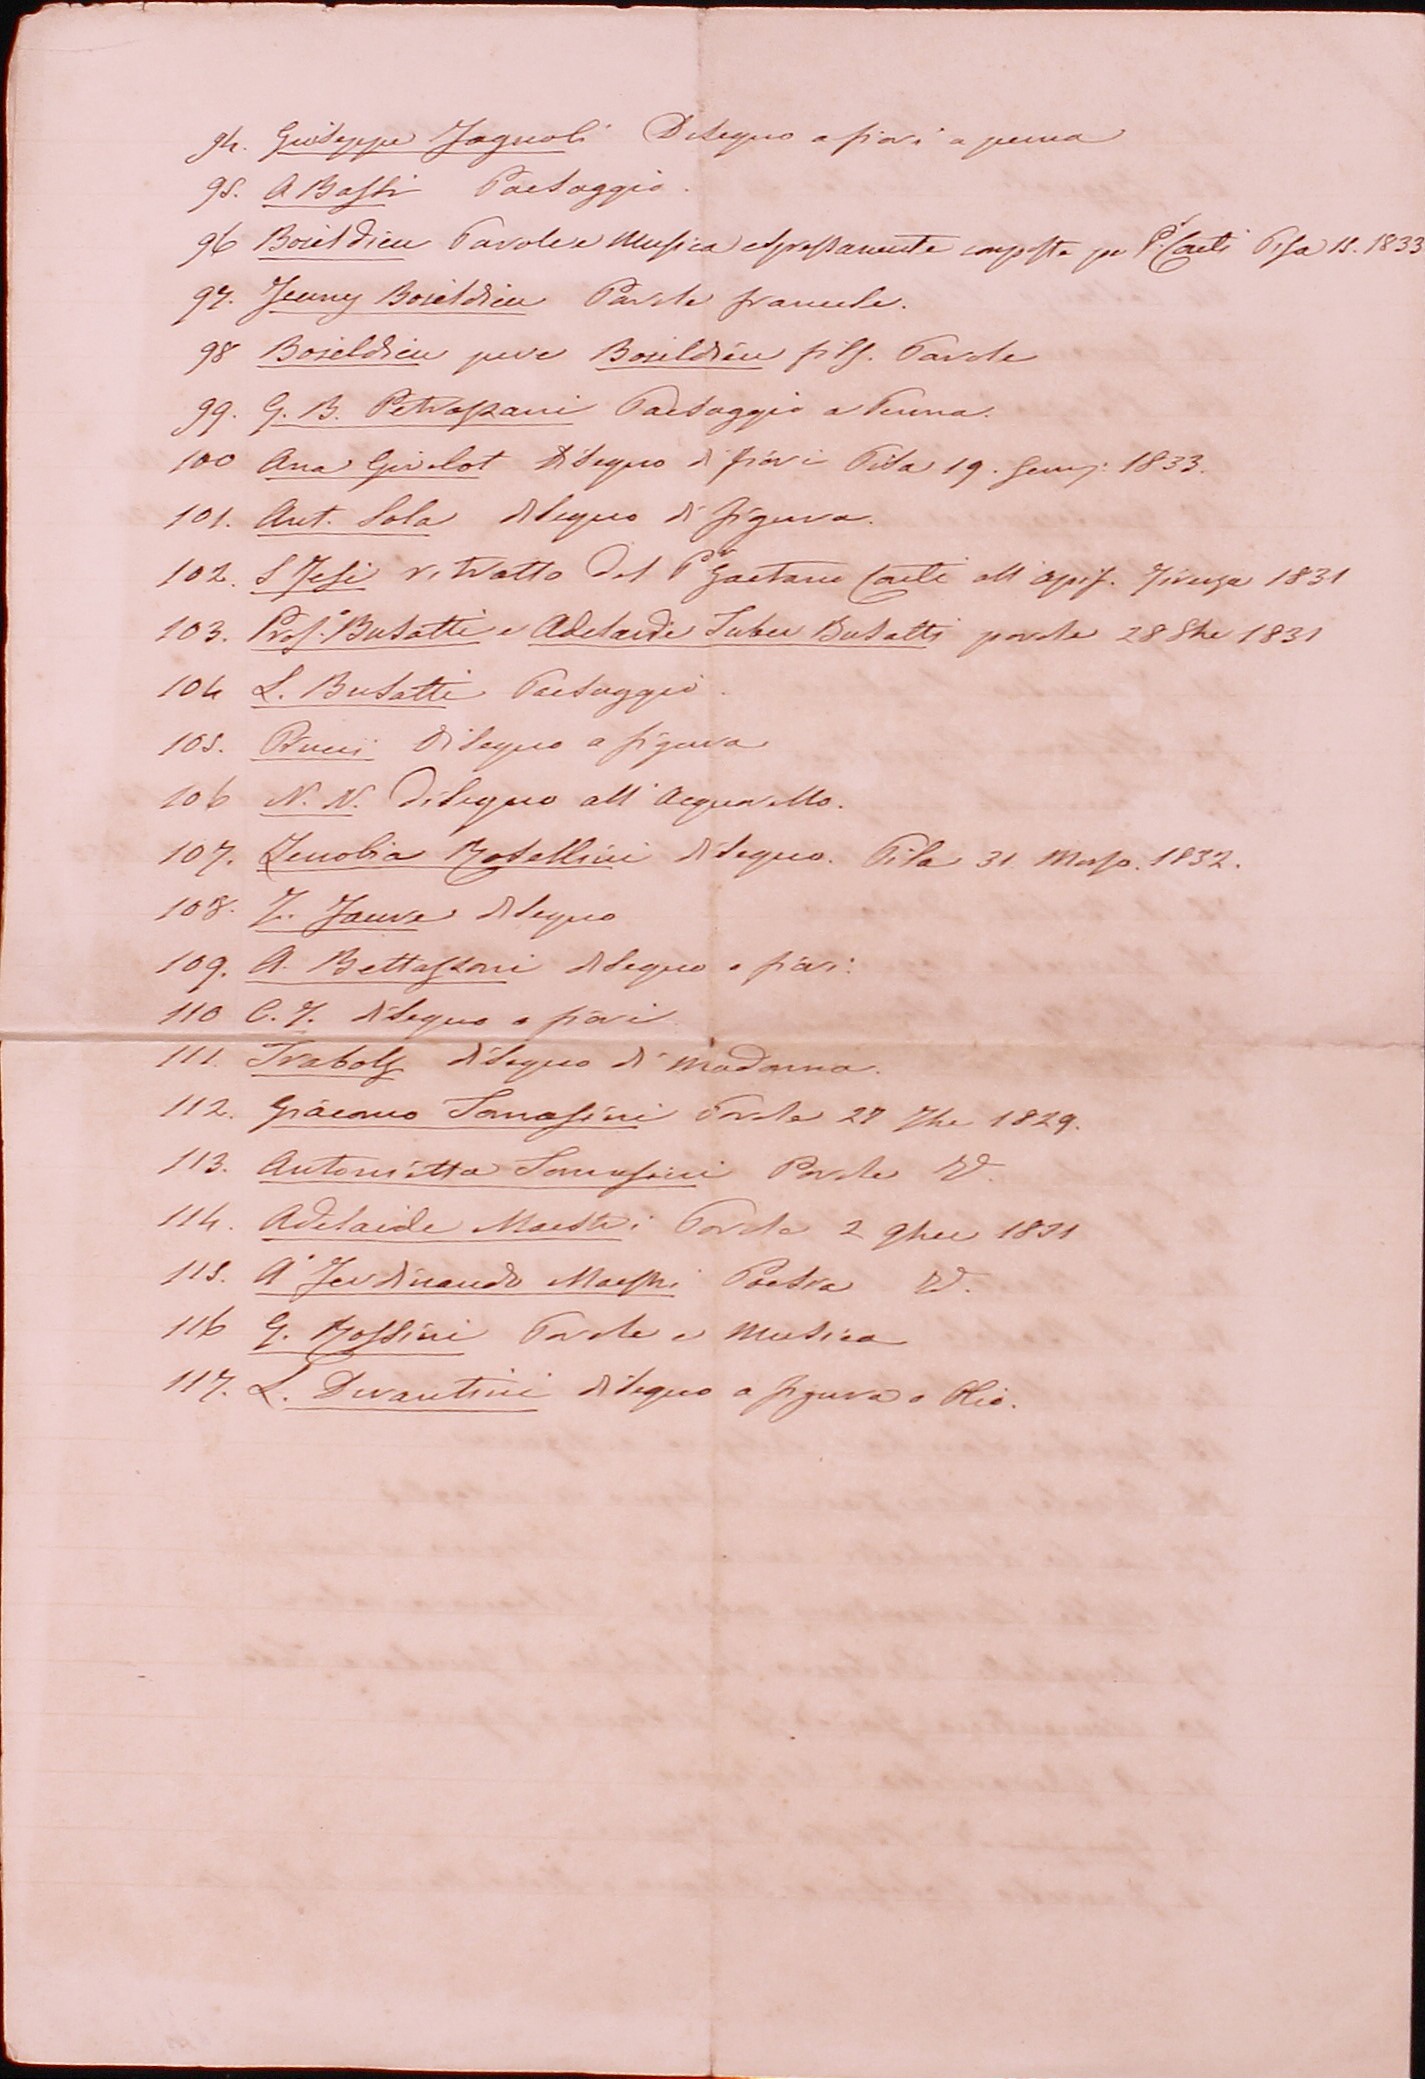 94. Giuseppe Fagnoli Disegno a fiori a penna
95. A Bassi Paesaggio.
96 Boieldieu Parole e Musica espressamente composta per Pr. Conti Pisa 15. 1833
97. Jenny Boieldieu Parole francese.
98 Boieldieu pere Boieldieu fils. Parole
99. G. B. Petrazzani Paesaggio a Penna.
100 Ana Givelot Disegno di fiori Pisa 19. 1833.
101. Ant. Sola disegno di figura.
102. S Jesi ritratto del Pr Gaetano Conti all Firenze 1831
103. Prof.e Busatti e Adelaide Busatti parole 28 8bre 1831
104 L. Busatti Paesaggio.
105. Disegno a figura
106 N. N. Disegno all' Acquarello.
107. Zenobia Rosellini disegno. Pisa 31 Marzo. 1832.
108. disegno
109. A. Bettazzoni disegno a fiori:
110 C. F. disegno a fiori
111. disegno di Madonna.
112. Giacomo Tomasini Parole 27 7bre 1829.
113. Antonietta Tomasini Parole Id.
114. Adelaide Maestri Parole 2 9bre 1831
115. A. Ferdinando Maestri Poesia Id.
116 G. Rossini Parole e Musica
117. L. Durantini disegno a figura a Olio.